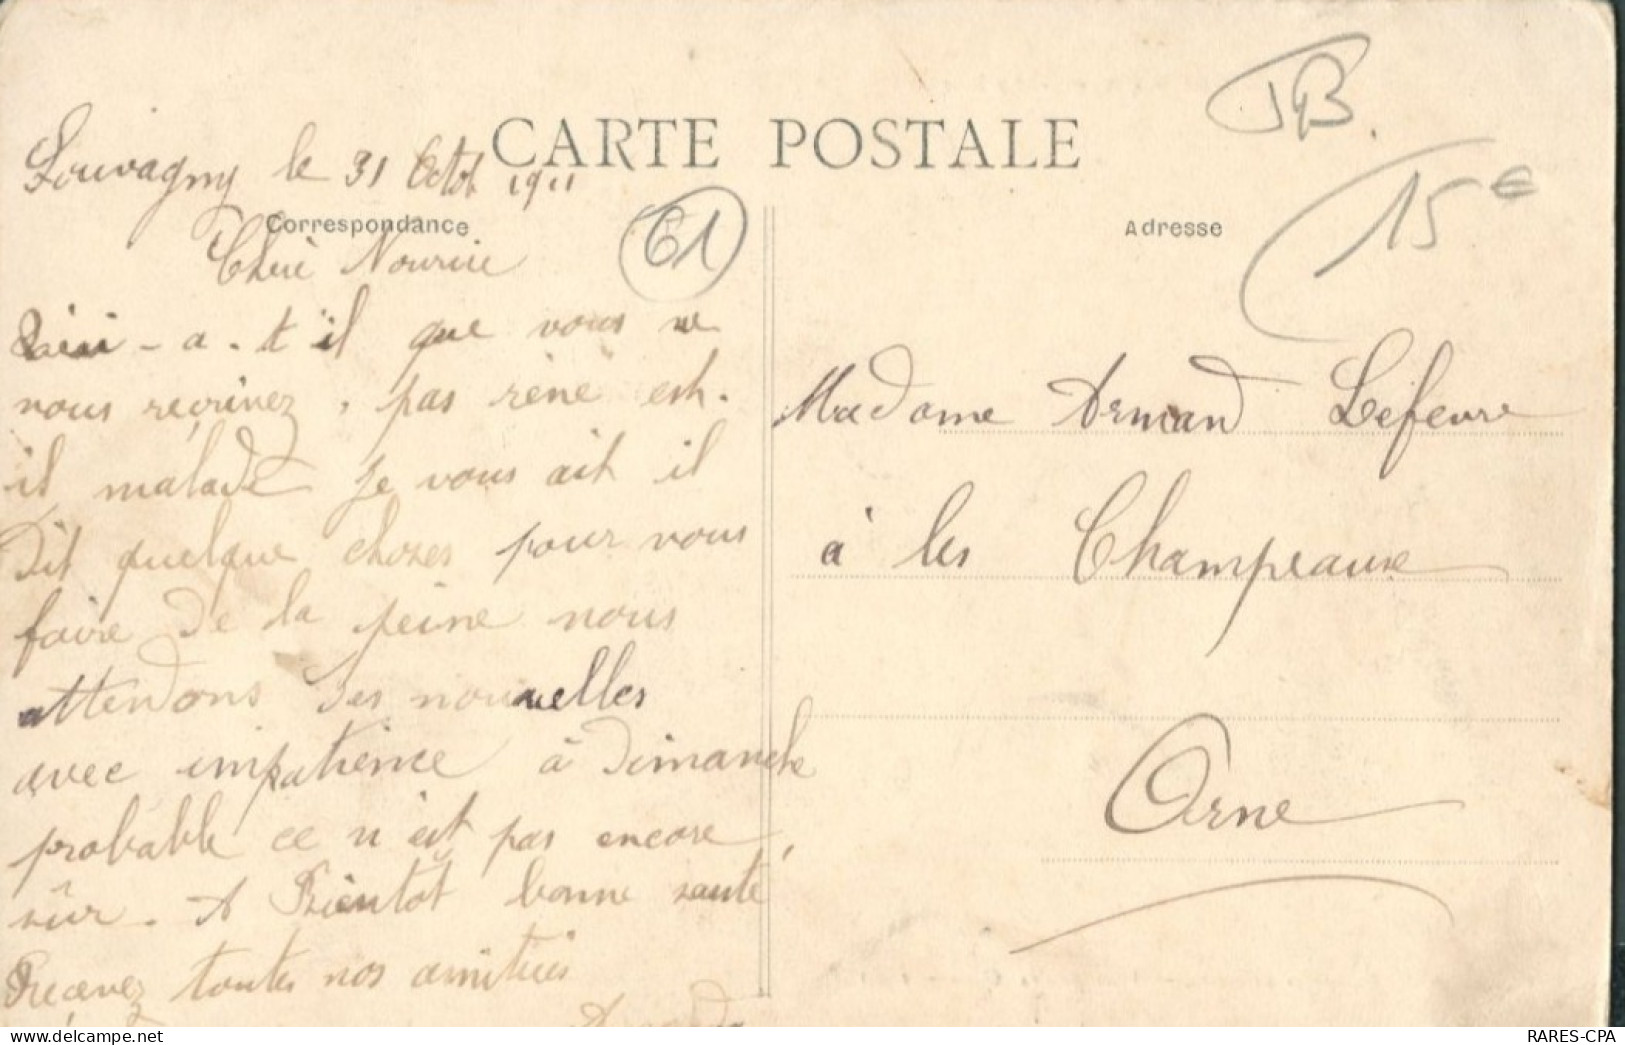 CARTE POSTALE
Louvagny le 31 Octob 1911
Correspondance
Chère Nourrice
- a. t'il que vous ne
nous reçrivez, pas réné est.
il malade je vous ait il
Dit quelque choses pour vous
faire de la peine nous
attendons des nouvelles
avec impatience à Dimanche
probable ce n'est pas encore,
sûr. A Bientôt bonne santé
Recevez toutes nos amitiés
61
JB.
15 €
Adresse
Madame Armand Lefevre
à les Champeaux
Orne
RARES-CPA